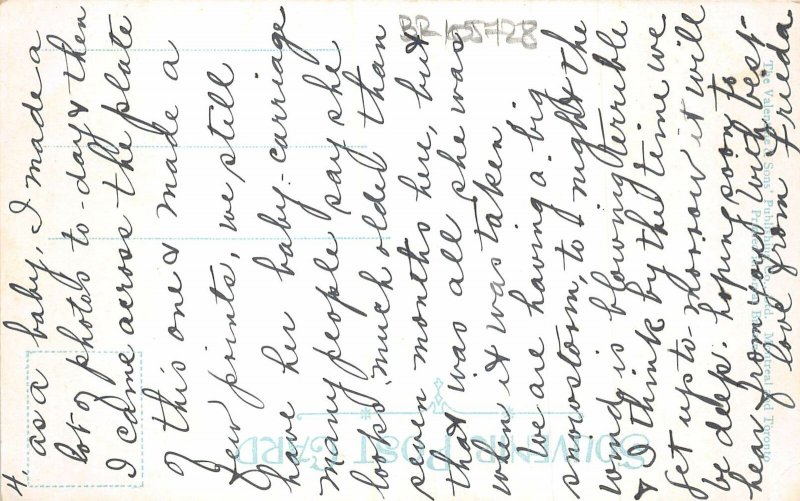 4.
as a baby, I made a
lot of photos to-day & then
I came across the plate
of this one & made a
few prints, we still
have her baby-carriage
Many people say she
looks much older than
seven months here, but
that was all she was
when it was taken.
We are having a big
snowstorm, to night & the
wind is blowing terrible
& I think by the time we
get up to-morrow it will
be deep. hoping soon to
hear from you, with best
love from Frieda
BR 55128
SOUVENIR POST CARD
The Valentine & Sons' Publishing Co. Ltd. Montreal and Toronto